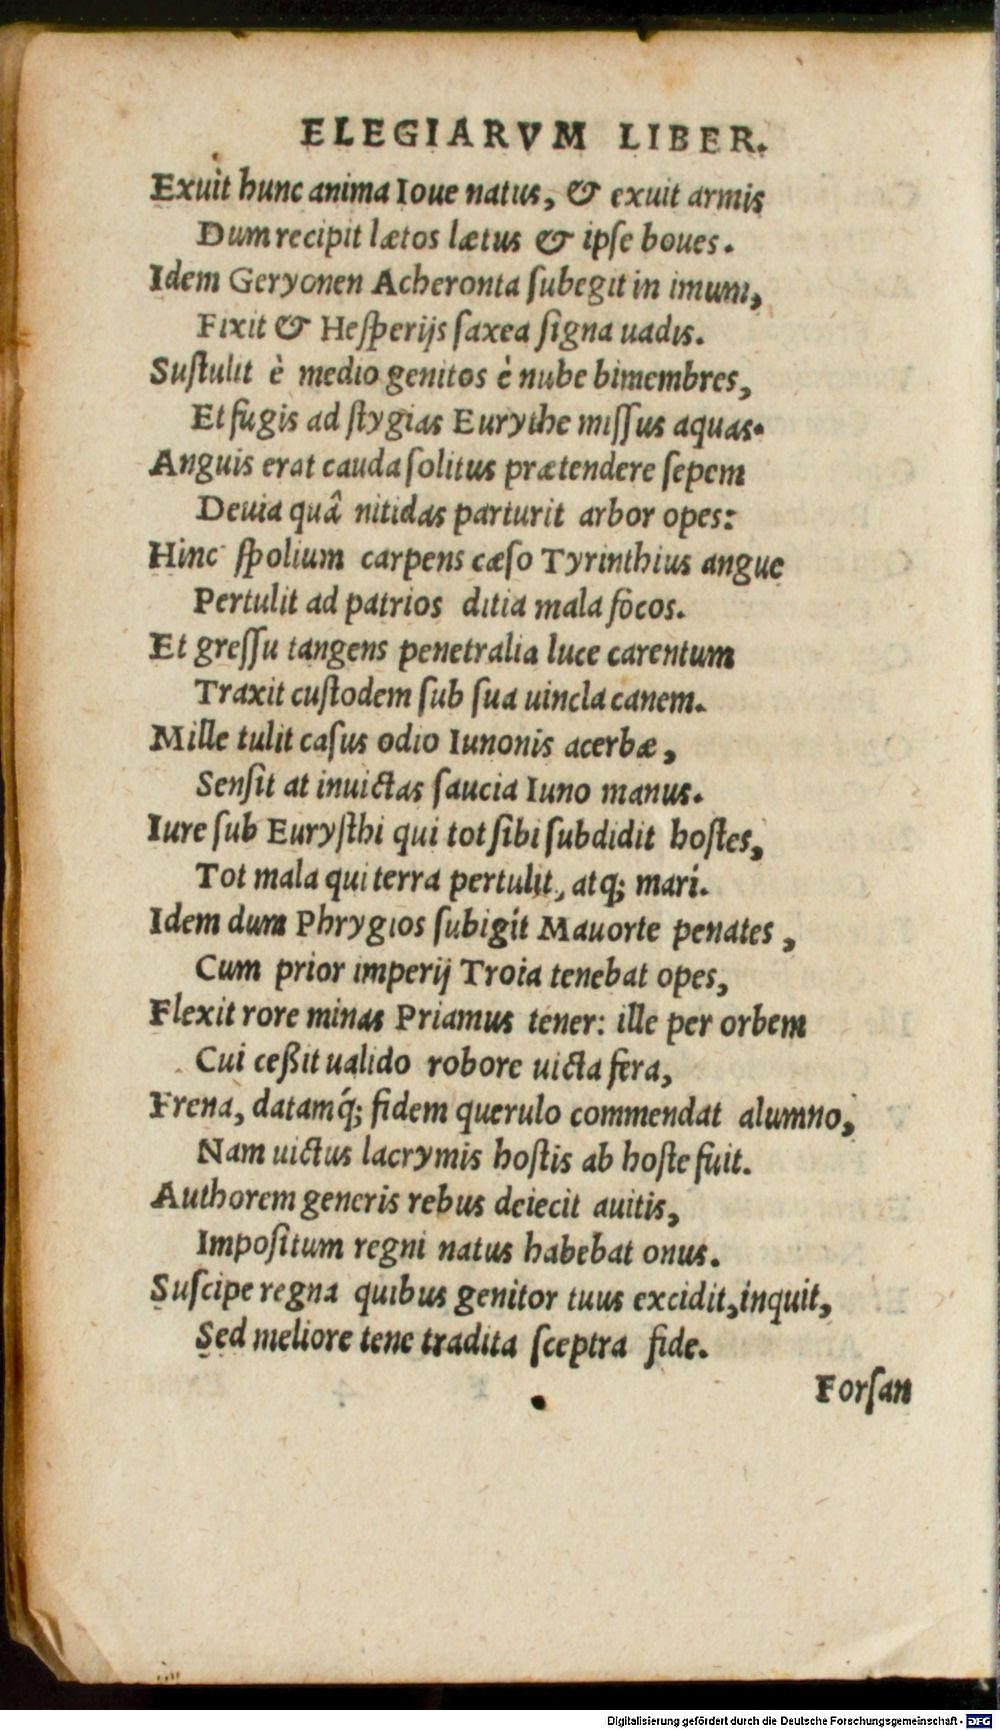 ELEGIARVM LIBER.
Exuit hunc anima Ioue natus, & exuit armis
Dum recipit lætos lætus & ipſe boues.
Idem Geryonen Acheronta ſubegit in imum,
Fixit & Heſperijs ſaxea ſigna uadis.
Suſtulit è medio genitos è nube bimembres,
Et fugis ad ſtygias Eurythe miſſus aquas.
Anguis erat cauda ſolitus prætendere ſepem
Deuia quâ nitidas parturit arbor opes:
Hinc ſpolium carpens cæſo Tyrinthius angue
Pertulit ad patrios ditia mala focos.
Et greſſu tangens penetralia luce carentum
Traxit cuſtodem ſub ſua uincla canem.
Mille tulit caſus odio Iunonis acerbæ,
Senſit at inuictas ſaucia Iuno manus.
Iure ſub Euryſthi qui tot ſibi ſubdidit hoſtes,
Tot mala qui terra pertulit, atq; mari.
Idem dum Phrygios ſubigit Mauorte penates,
Cum prior imperij Troia tenebat opes,
Flexit rore minas Priamus tener: ille per orbem
Cui ceßit ualido robore uicta fera,
Frena, datamq́; fidem querulo commendat alumno,
Nam uictus lacrymis hoſtis ab hoſte fuit.
Authorem generis rebus deiecit auitis,
Impoſitum regni natus habebat onus.
Suſcipe regna quibus genitor tuus excidit, inquit,
Sed meliore tene tradita ſceptra fide.
Forſan
Digitalisierung gefördert durch die Deutsche Forschungsgemeinschaft - DFG